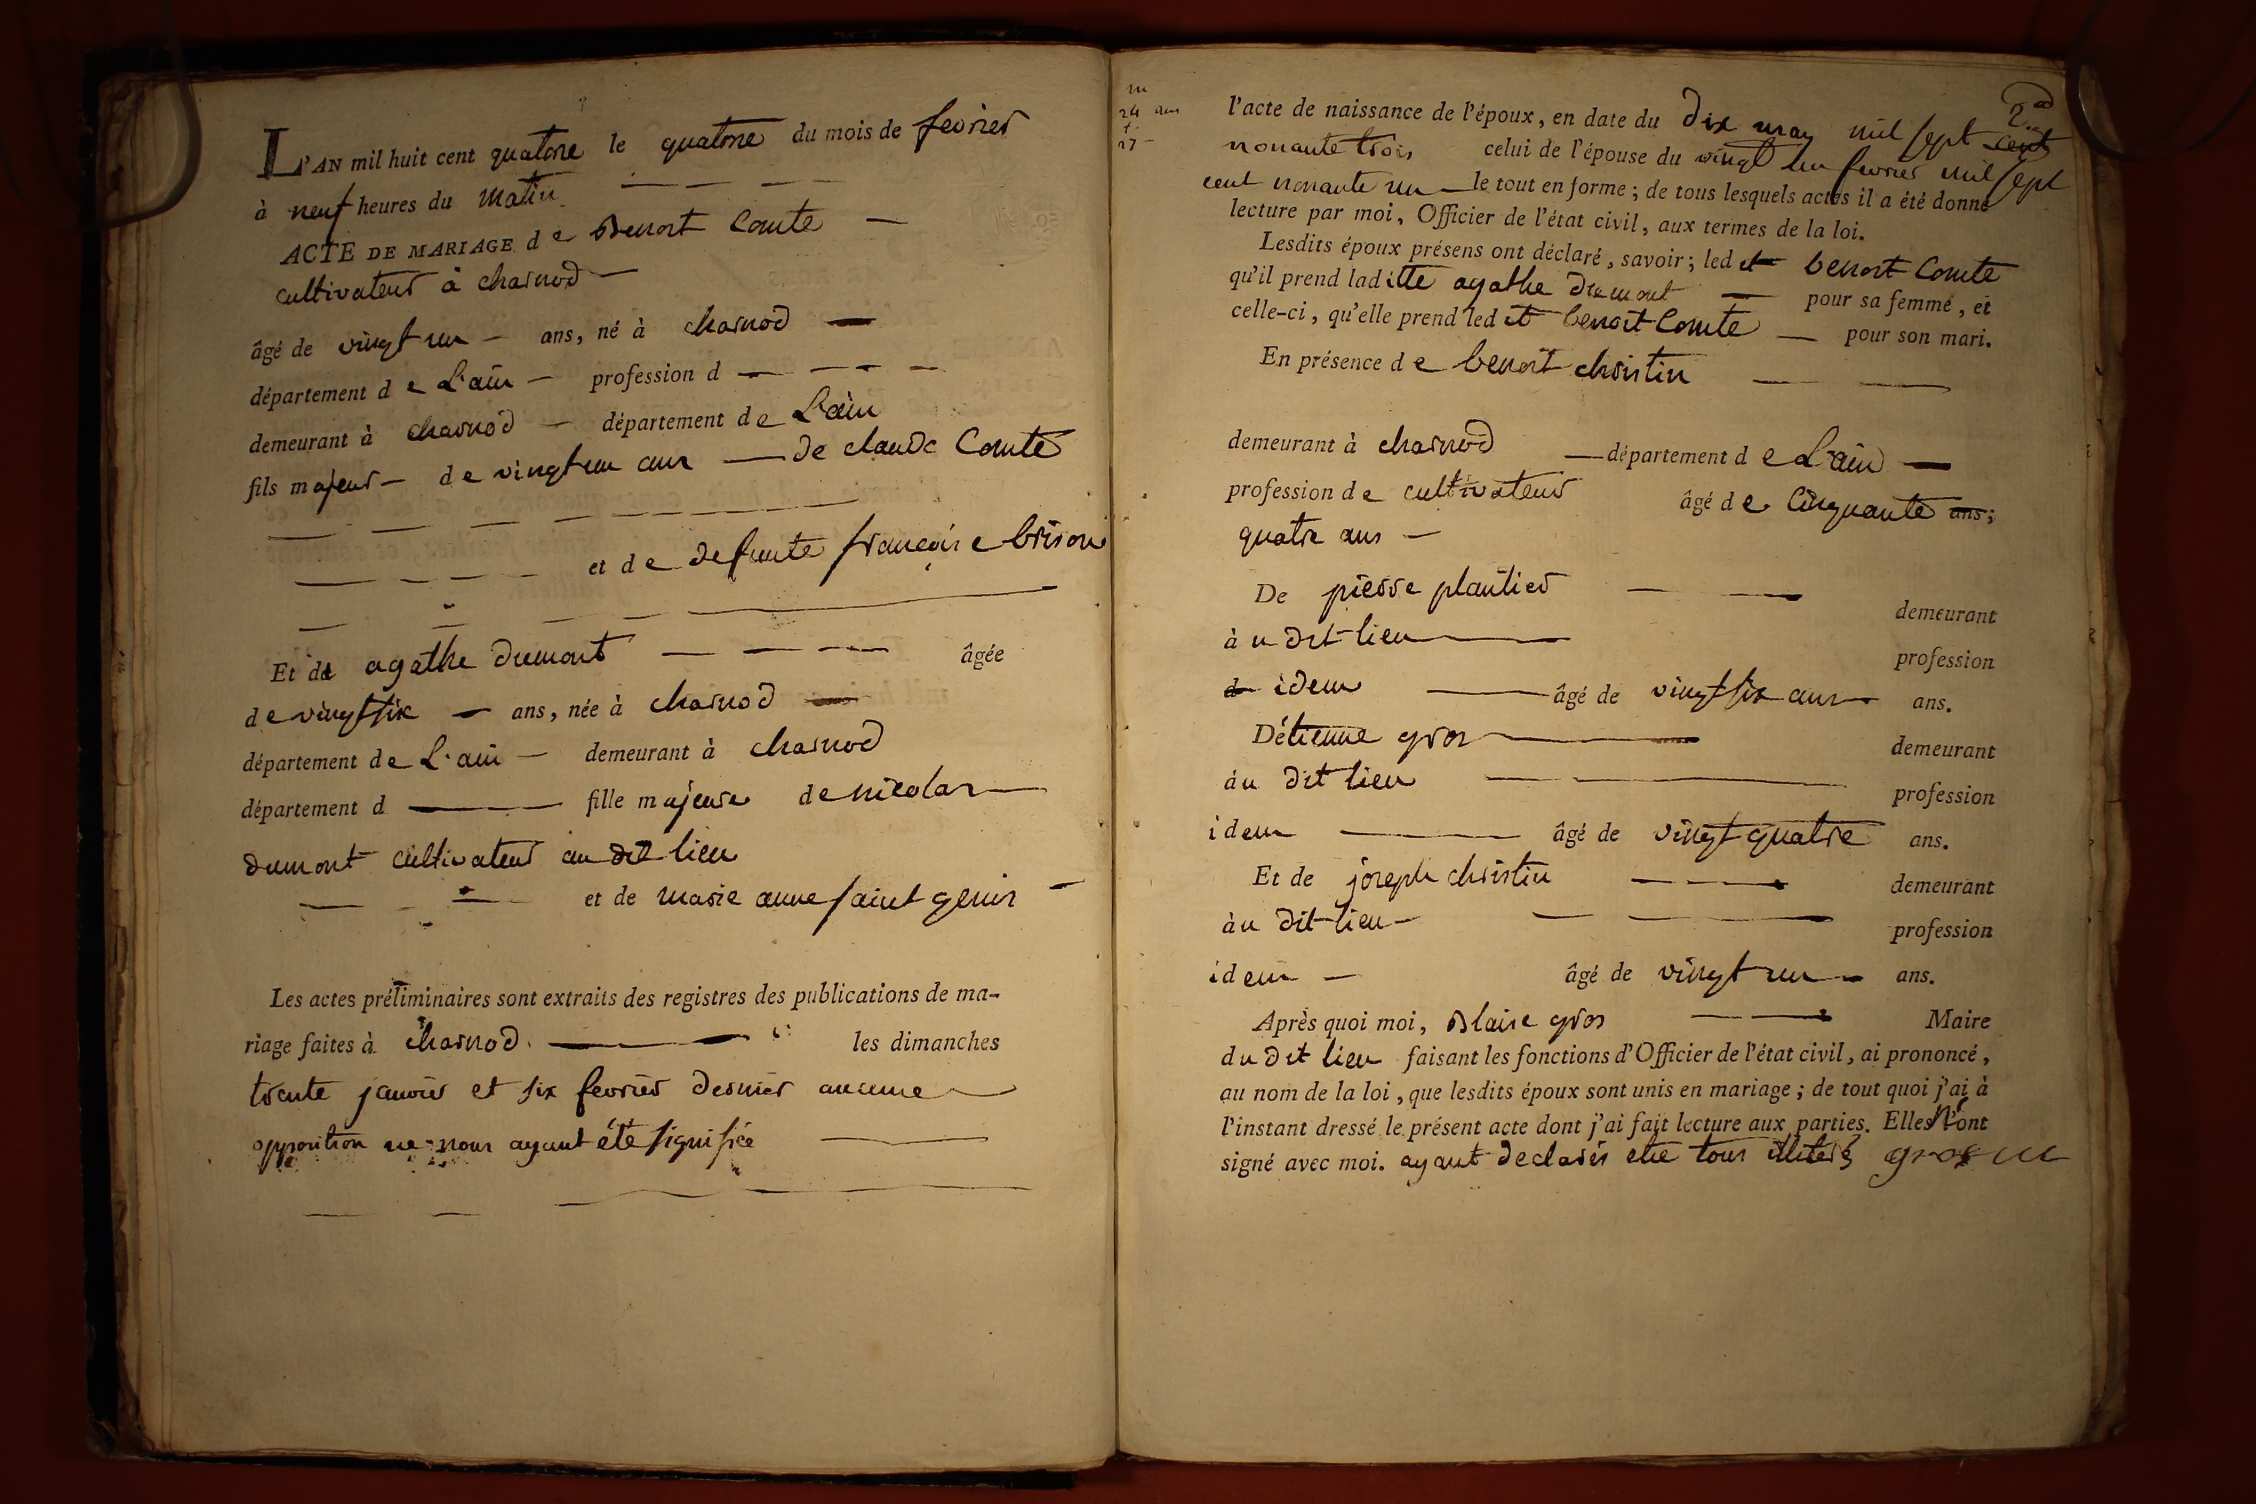 L'AN mil huit cent quatorze le quatorze du mois de fevrier
à neuf heures du matin
ACTE DE MARIAGE de Benoit Comte
cultivateur à charnod
âgé de vingt un ans, né à charnod
département de L'ain profession d
demeurant à charnod département de L'ain
fils majeur de vingt un ans de claude Comte
et de defunte francoise brison
Et de agathe dumont âgée
de vingt six ans, née à charnod
département de L'ain demeurant à charnod
département d fille majeure de nicolas
dumont cultivateur au dit lieu
et de marie anne saint genis
Les actes préliminaires sont extraits des registres des publications de ma-
riage faites à charnod les dimanches
trente janvier et six fevrier dernier aucune
opposition ne nous ayant été signifiée
24 ans
27
2
l'acte de naissance de l'époux, en date du dix may mil sept cent
nonante trois celui de l'épouse du vingt un fevrier mil sept
cent nonante un le tout en forme; de tous lesquels actes il a été donné
lecture par moi, Officier de l'état civil, aux termes de la loi.
Lesdits époux présens ont déclaré, savoir; ledit benoit Comte
qu'il prend laditte agathe dumont pour sa femme, et
celle-ci, qu'elle prend ledit benoit Comte pour son mari.
En présence de benoit christin
demeurant à charnod département de L'ain
profession de cultivateur âgé de Cinquante ans;
quatre ans
De pierre plantier demeurant
àu dit lieu profession
d idem âgé de vingt six ans ans.
Détienne gros demeurant
àu dit lieu profession
idem âgé de vingt quatre ans.
Et de joseph christin demeurant
àu dit lieu profession
idem âgé de vingt un ans.
Après quoi moi, Blaise gros Maire
du dit lieu faisant les fonctions d'Officier de l'état civil, ai prononcé,
au nom de la loi, que lesdits époux sont unis en mariage; de tout quoi j'ai à
l'instant dressé le présent acte dont j'ai fait lecture aux parties. Elles n'ont
signé avec moi. ayant declarés etre tous illiterés gros